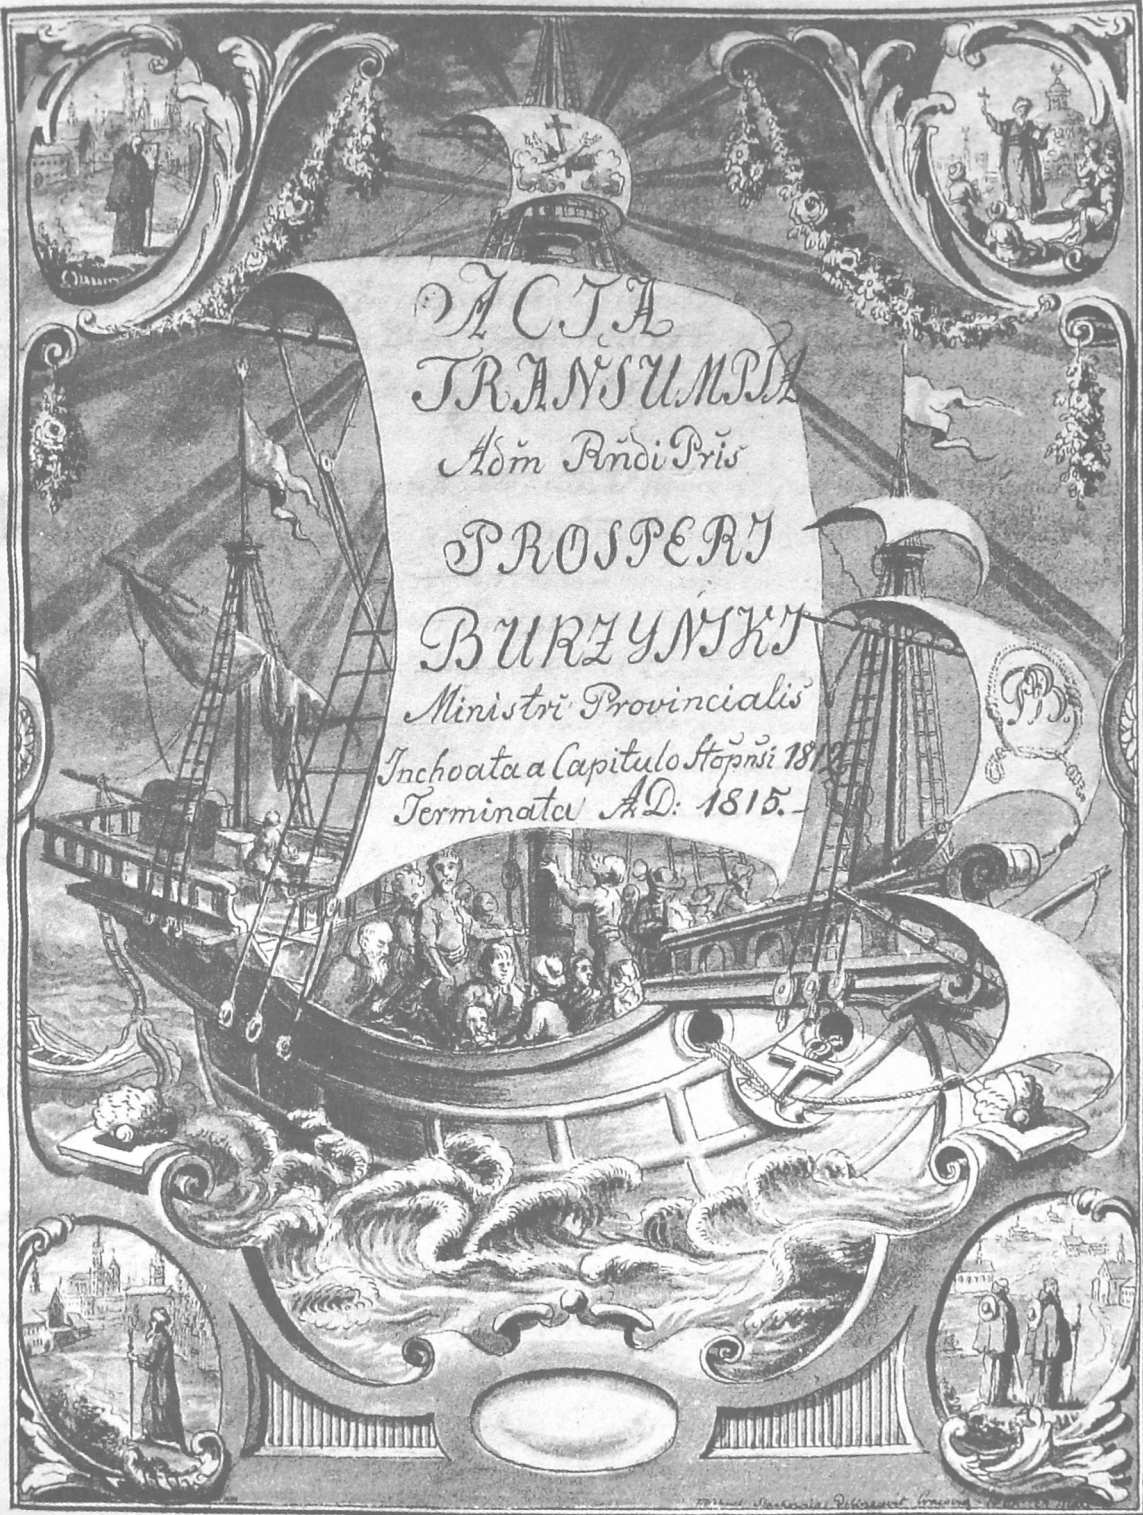 ACTA
TRANSUMPTA
Adm̃ Rñdi Pr̃is
PROSPERI
BURZYŃSKI
Ministri Provincialis
Inchoata a Capitulo Stopñsi 1812
Terminata AD: 1815.-
PB.